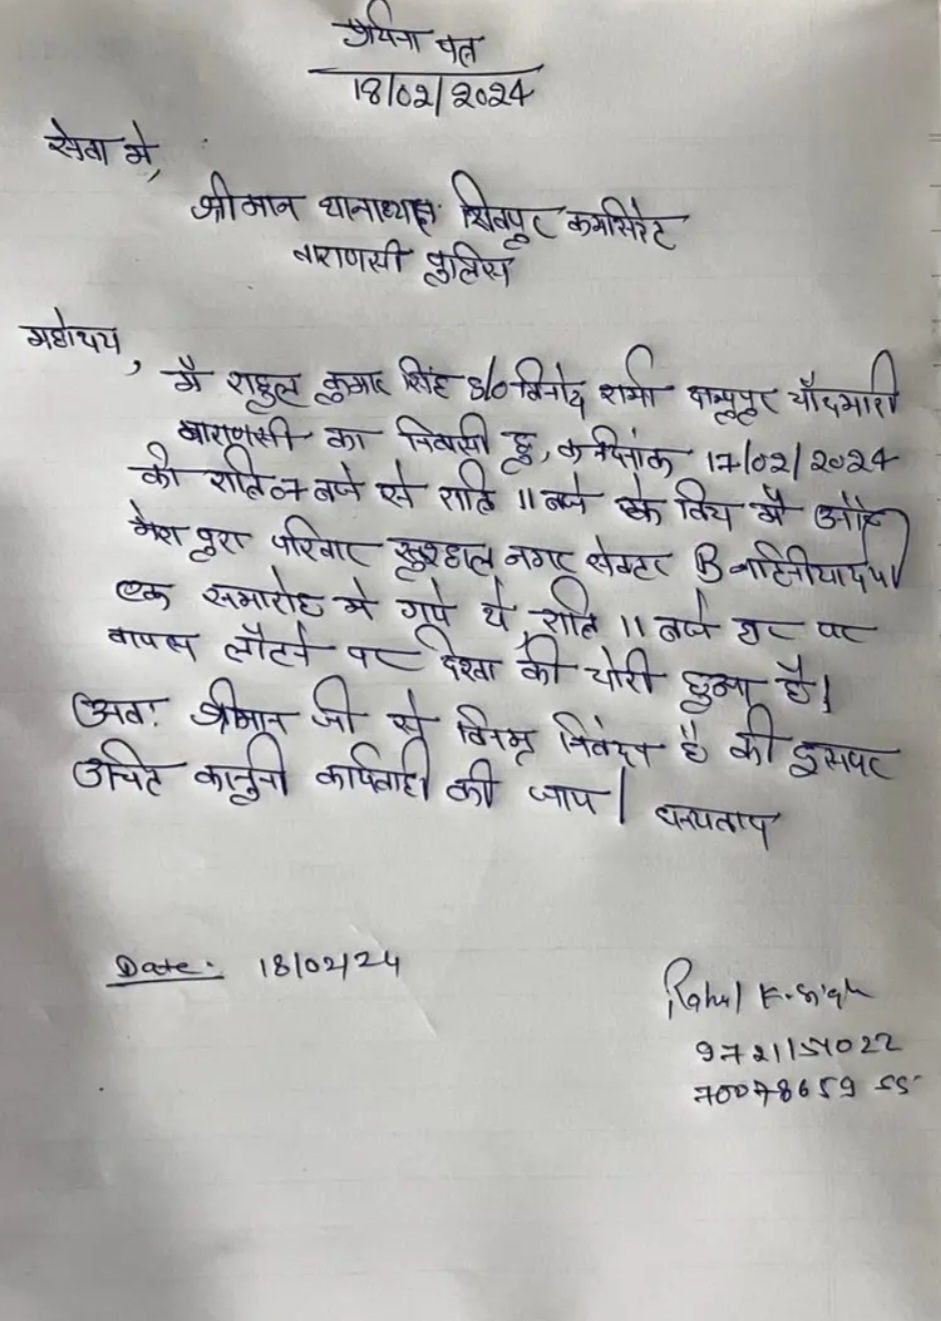 प्रार्थना पत्र
18/02/2024
सेवा में,
श्रीमान थानाध्यक्ष शिवपुर कमसिरेट
वाराणसी पुलिस
महोदय,
मै राहुल कुमार सिंह s/o विनोद शर्मा दान्दूपुर चाँदमारी
वाराणसी का निवासी हु, दिनांक 17/02/2024
को रात्रि 7 बजे से रात्रि 11 बजे के बिच मैं और
मेरा पुरा परिवार खुशहाल नगर सेक्टर B
एक समारोह मे गये थे, रात्रि 11 बजे घर पर
वापस लौटने पर देखा की चोरी हुआ है।
अतः श्रीमान जी से विनम्र निवेदन है की इसपर
उचित कानुनी कार्यवाही की जाय। धन्यवाद
Date. 18/02/24
Rahul K. Singh
9721154022
7007865955